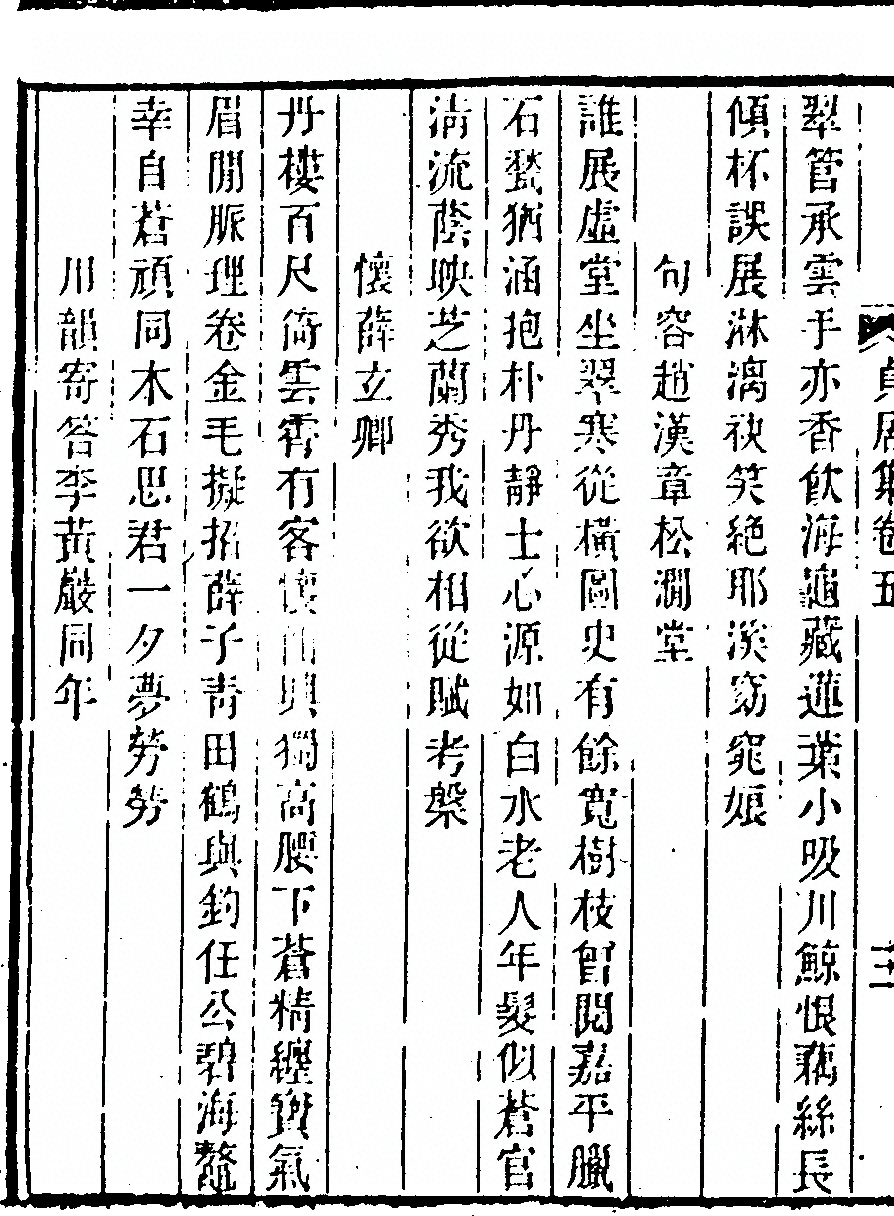 貞居集卷五 十二
翠管承雲手亦香飲海龜藏蓮葉小吸川鯨恨藕絲長
傾杯誤展淋漓袂笑絶耶溪窈窕娘
句容趙漢章松澗堂
誰展虛堂坐翠寒從橫圖史有餘寬樹枝曾閱嘉平臘
石甃猶涵抱朴丹靜士心源如白水老人年髮似蒼官
淸流蔭映芝蘭秀我欲相從賦考槃
懷薛立卿
丹樓百尺倚雲霄有客懷仙興獨高腰下蒼精纏寶氣
眉間脈理卷金毛擬招薛子靑田鶴與釣任公碧海鼇
幸自蒼頑同木石思君一夕夢勞勞
用韻寄答李黃巖同年